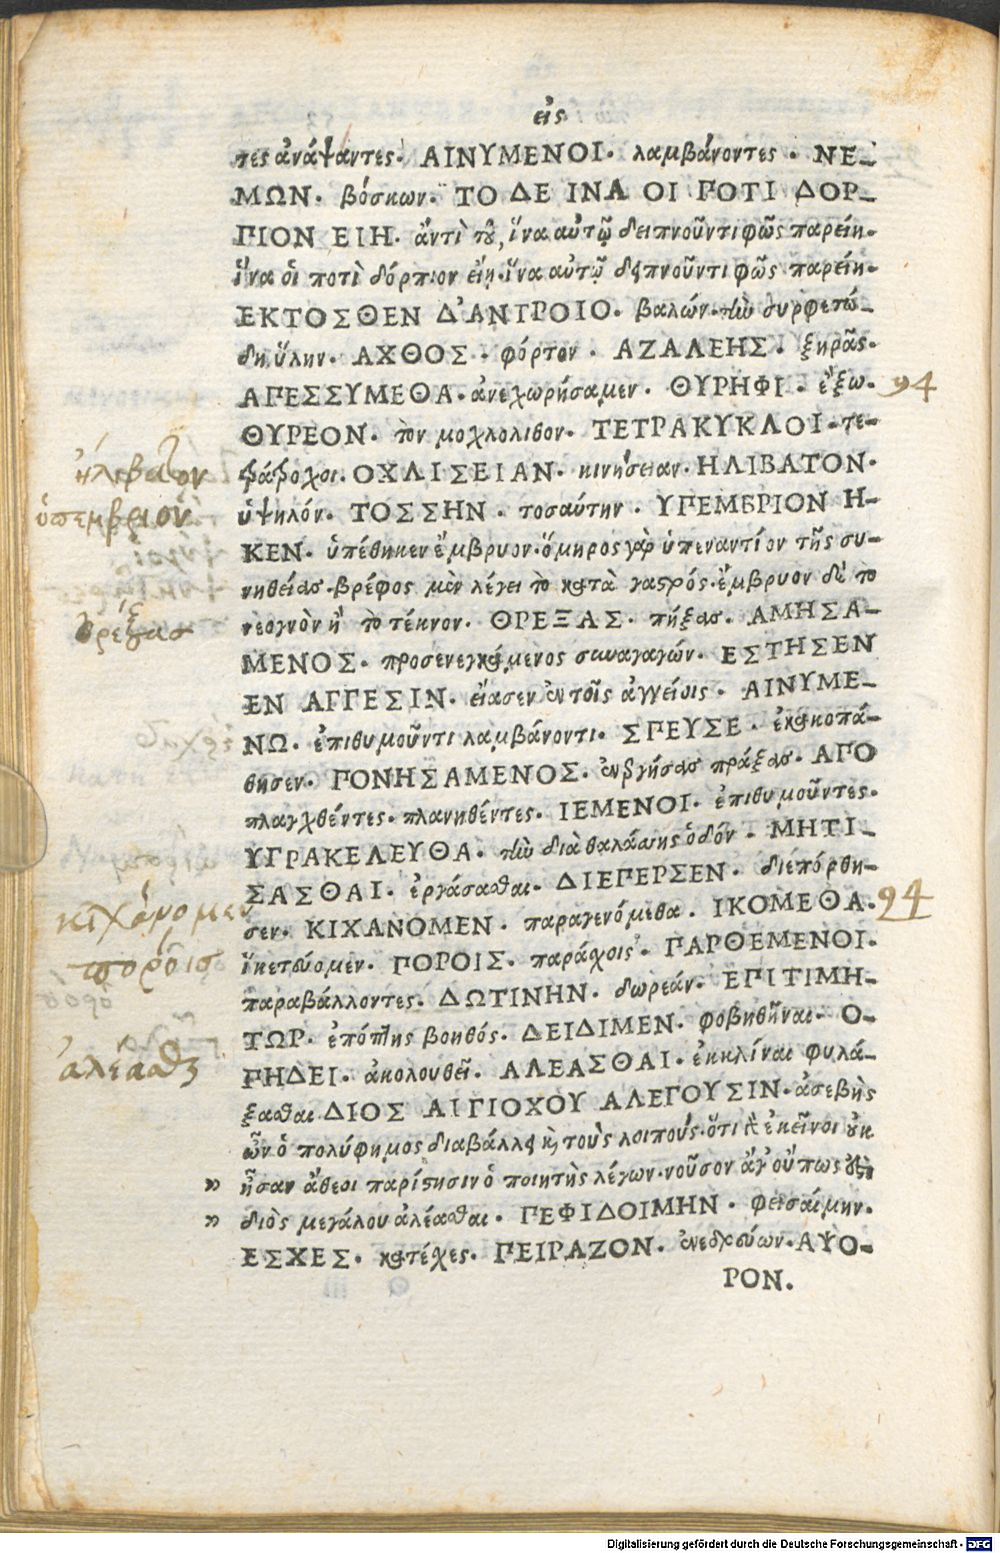 εἰς
τες ἀνάψαντες. ΑΙΝΥΜΕΝΟΙ. λαμβάνοντες. ΝΕ-
ΜΩΝ. βόσκων. ΤΟ ΔΕ ΙΝΑ ΟΙ ΠΟΤΙ ΔΟΡ-
ΠΙΟΝ ΕΙΗ. ἀντὶ τοῦ, ἵνα αὐτῷ δειπνοῦντι φῶς παρείη.
ἵνα ὁἱ ποτὶ δόρπιον εἴη. ἵνα αὐτῷ δειπνοῦντι φῶς παρείη.
ΕΚΤΟΣΘΕΝ Δ'ΑΝΤΡΟΙΟ. βαλών. τὴν συρφετώ-
δη ὕλην. ΑΧΘΟΣ. φόρτον. ΑΖΑΛΕΗΣ. ξηρᾶς.
ΑΠΕΣΣΥΜΕΘΑ. ἀνεχωρήσαμεν. ΘΥΡΗΦΙ. ἔξω. 94
ΘΥΡΕΟΝ. τὸν μοχλολιθον. ΤΕΤΡΑΚΥΚΛΟΙ. τε-
τράτροχοι. ΟΧΛΙΣΕΙΑΝ. κινήσειαν. ΗΛΙΒΑΤΟΝ.
ὑψηλόν. ΤΟΣΣΗΝ. τοσαύτην. ΥΠΕΜΒΡΙΟΝ Η-
ΚΕΝ. ὑπέθηκεν ἔμβρυον. ὅμηρος γὰρ ὑπεναντίον τῆς συ-
νηθείας. βρέφος μὲν λέγει τὸ κατὰ γαστρός. ἔμβρυον δὲ τὸ
νεογνὸν ἢ τὸ τέκνον. ΘΡΕΞΑΣ. πήξας. ΑΜΗΣΑ-
ΜΕΝΟΣ. προσενεγκάμενος συναγαγών. ΕΣΤΗΣΕΝ
ΕΝ ΑΓΓΕΣΙΝ. εἴασεν ἐν τοῖς ἀγγείοις. ΑΙΝΥΜΕ-
ΝΩ. ἐπιθυμοῦντι λαμβάνοντι. ΣΠΕΥΣΕ. ἐκακοπά-
θησεν. ΠΟΝΗΣΑΜΕΝΟΣ. ἐνεργήσας πράξας. ΑΠΟ
πλαγχθέντες. πλανηθέντες. ΙΕΜΕΝΟΙ. ἐπιθυμοῦντες.
ΥΓΡΑΚΕΛΕΥΘΑ. τὴν διὰ θαλάσσης ὁδόν. ΜΗΤΙ-
ΣΑΣΘΑΙ. ἐργάσασθαι. ΔΙΕΠΕΡΣΕΝ. διεπόρθη-
σεν. ΚΙΧΑΝΟΜΕΝ. παραγενόμεθα. ΙΚΟΜΕΘΑ. 94
ἱκετεύομεν. ΠΟΡΟΙΣ. παράσχοις. ΠΑΡΘΕΜΕΝΟΙ.
παραβάλλοντες. ΔΩΤΙΝΗΝ. δωρεάν. ΕΠΙΤΙΜΗ-
ΤΩΡ. ἐπόπτης βοηθός. ΔΕΙΔΙΜΕΝ. φοβηθῆναι. Ο-
ΠΗΔΕΙ. ἀκολουθεῖ. ΑΛΕΑΣΘΑΙ. ἐκκλίναι φυλά-
ξασθαι ΔΙΟΣ ΑΙΓΙΟΧΟΥ ΑΛΕΓΟΥΣΙΝ. ἀσεβὴς
ὢν ὁ πολύφημος διαβάλλει καὶ τοὺς λοιποὺς. ὅτι δὲ ἐκεῖνοι οὐκ
" ἦσαν ἄθεοι παρίστησιν ὁ ποιητὴς λέγων. νοῦσον δ' οὔπως ἔστι
" διὸς μεγάλου ἀλέασθαι. ΠΕΦΙΔΟΙΜΗΝ. φεισαίμην.
ΕΣΧΕΣ. κατέχες. ΠΕΙΡΑΖΩΝ. ἐνεδρεύων. ΑΨΟ-
ΡΟΝ.
ἠλίβατον
ὑπεμβριον
θρέξας
κιχάνομεν
πορ́οις
ἀλέασθαι
Digitalisierung gefördert durch die Deutsche Forschungsgemeinschaft - DFG